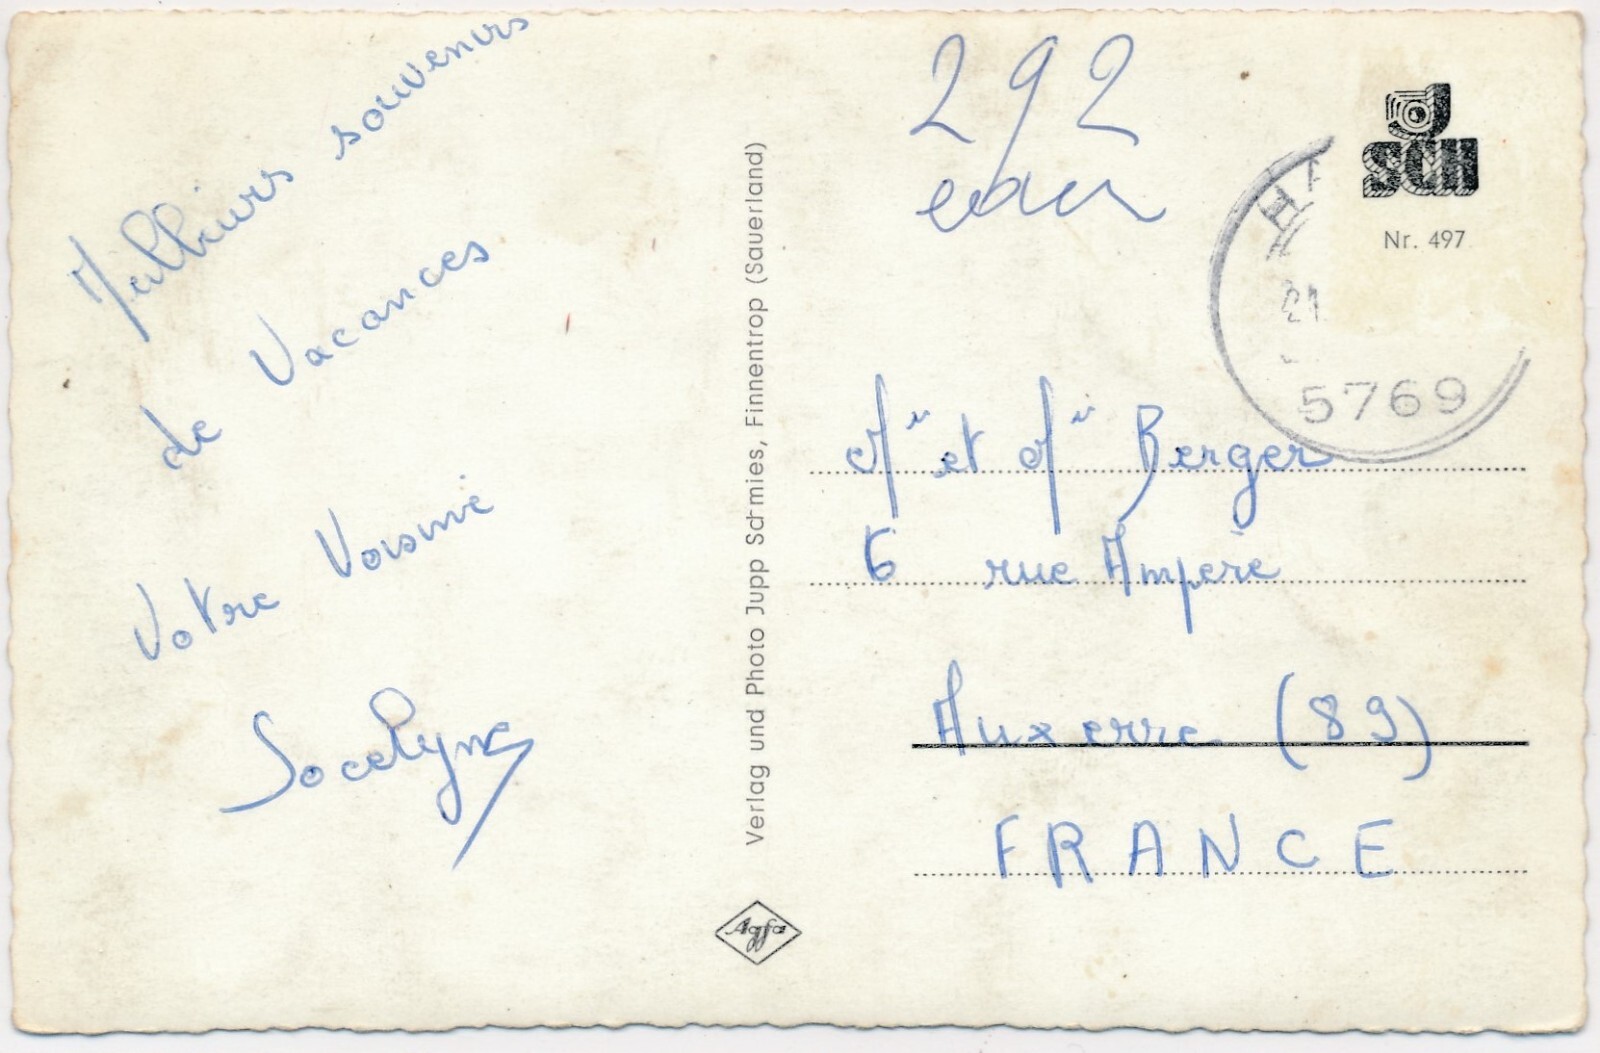 Meilleurs souvenirs
de Vacances
Votre Voisine
Jocelyne
Verlag und Photo Jupp Schmies, Finnentrop (Sauerland)
Agfa
292
SCH
Nr. 497
21
5769
Mr et Me Berger
6 rue Ampère
Auxerre (89)
FRANCE